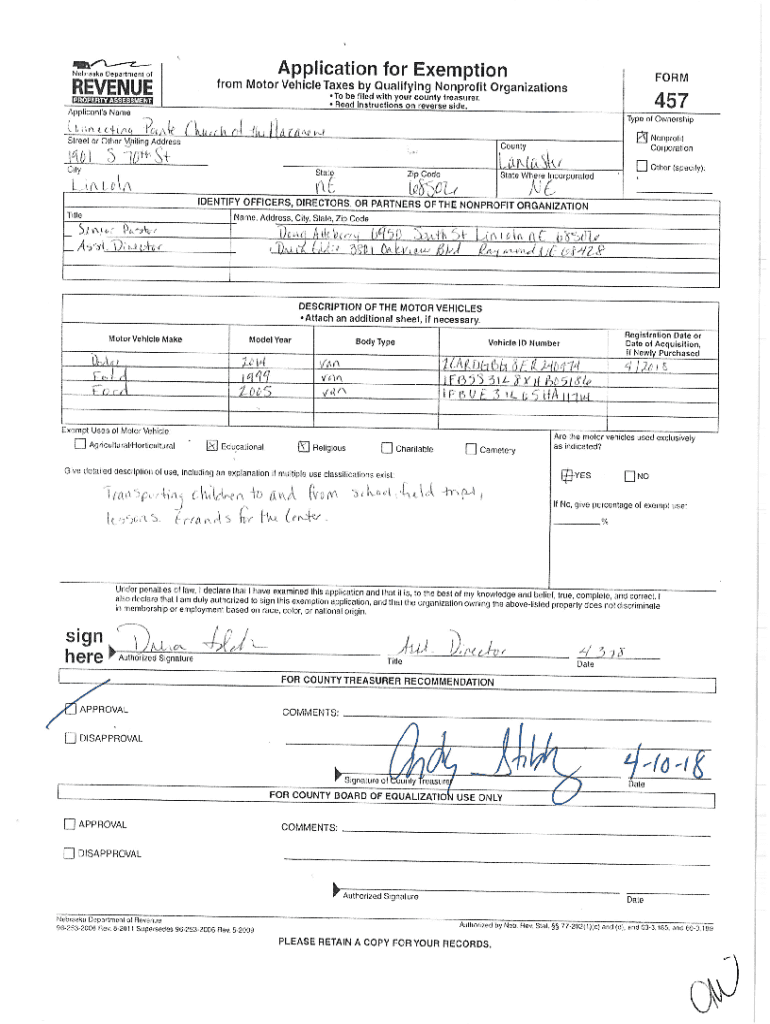 Nebraska Department of
REVENUE
PROPERTY ASSESSMENT
Application for Exemption
from Motor Vehicle Taxes by Qualifying Nonprofit Organizations
• To be filed with your county treasurer.
• Read instructions on reverse side.
FORM
457
Applicant's Name
Church of the Nazarene
Type of Ownership
Street or Other Mailing Address
County
Nonprofit Corporation
1901 S 70th St
Lancaster
City
State
Zip Code
State Where Incorporated
Other (specify):
Lincoln
NE
68506
NE
IDENTIFY OFFICERS, DIRECTORS, OR PARTNERS OF THE NONPROFIT ORGANIZATION
Title
Name, Address, City, State, Zip Code
Senior Pastor
6950 South St Lincoln NE 68506
Asst. Director
3501 Oakview Blvd Raymond NE 68428
DESCRIPTION OF THE MOTOR VEHICLES
• Attach an additional sheet, if necessary.
Motor Vehicle Make
Model Year
Body Type
Vehicle ID Number
Registration Date or Date of Acquisition, if Newly Purchased
Dodge
2014
van
4/2018
Ford
1999
van
Ford
2005
van
Exempt Uses of Motor Vehicle
Agricultural/Horticultural
Educational
Religious
Charitable
Cemetery
Are the motor vehicles used exclusively
as indicated?
YES
NO
Give detailed description of use, including an explanation if multiple use classifications exist:
Transporting children to and from school, field trips,
lessons. Errands for the Center.
If No, give percentage of exempt use:
%
Under penalties of law, I declare that I have examined this application and that it is, to the best of my knowledge and belief, true, complete, and correct. I
also declare that I am duly authorized to sign this exemption application, and that the organization owning the above-listed property does not discriminate
in membership or employment based on race, color, or national origin.
sign
here
Asst. Director
Authorized Signature
Title
Date
FOR COUNTY TREASURER RECOMMENDATION
APPROVAL
COMMENTS:
DISAPPROVAL
Andy Stebbing
4-10-18
Signature of County Treasurer
Date
FOR COUNTY BOARD OF EQUALIZATION USE ONLY
APPROVAL
COMMENTS:
DISAPPROVAL
Authorized Signature
Date
Nebraska Department of Revenue
96-253-2006 Rev. 8-2011 Supersedes 96-253-2006 Rev. 5-2009
Authorized by Neb. Rev. Stat. §§ 77-202(1)(c) and (d), and 60-3,185, and 60-3,189
PLEASE RETAIN A COPY FOR YOUR RECORDS.